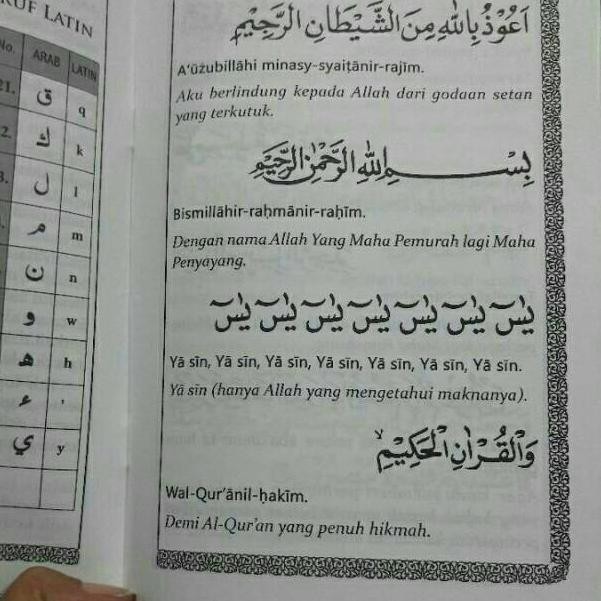 RUF LATIN
No. ARAB LATIN
21. ق q
2. ك k
3. ل l
م m
ن n
و w
ه h
ء '
ي y
اَعُوْذُ بِاللهِ مِنَ الشَّيْطَانِ الرَّجِيْمِ
A'ūżubillāhi minasy-syaiṭānir-rajīm.
Aku berlindung kepada Allah dari godaan setan
yang terkutuk.
بِسْــــمِ اللهِ الرَّحْمٰنِ الرَّحِيْمِ
Bismillāhir-raḥmānir-raḥīm.
Dengan nama Allah Yang Maha Pemurah lagi Maha
Penyayang.
يٰسۤ يٰسۤ يٰسۤ يٰسۤ يٰسۤ يٰسۤ يٰسۤ
Yā sīn, Yā sīn, Yā sīn, Yā sīn, Yā sīn, Yā sīn, Yā sīn.
Yā sīn (hanya Allah yang mengetahui maknanya).
وَالْقُرْاٰنِ الْحَكِيْمِۙ
Wal-Qur'ānil-ḥakīm.
Demi Al-Qur'an yang penuh hikmah.